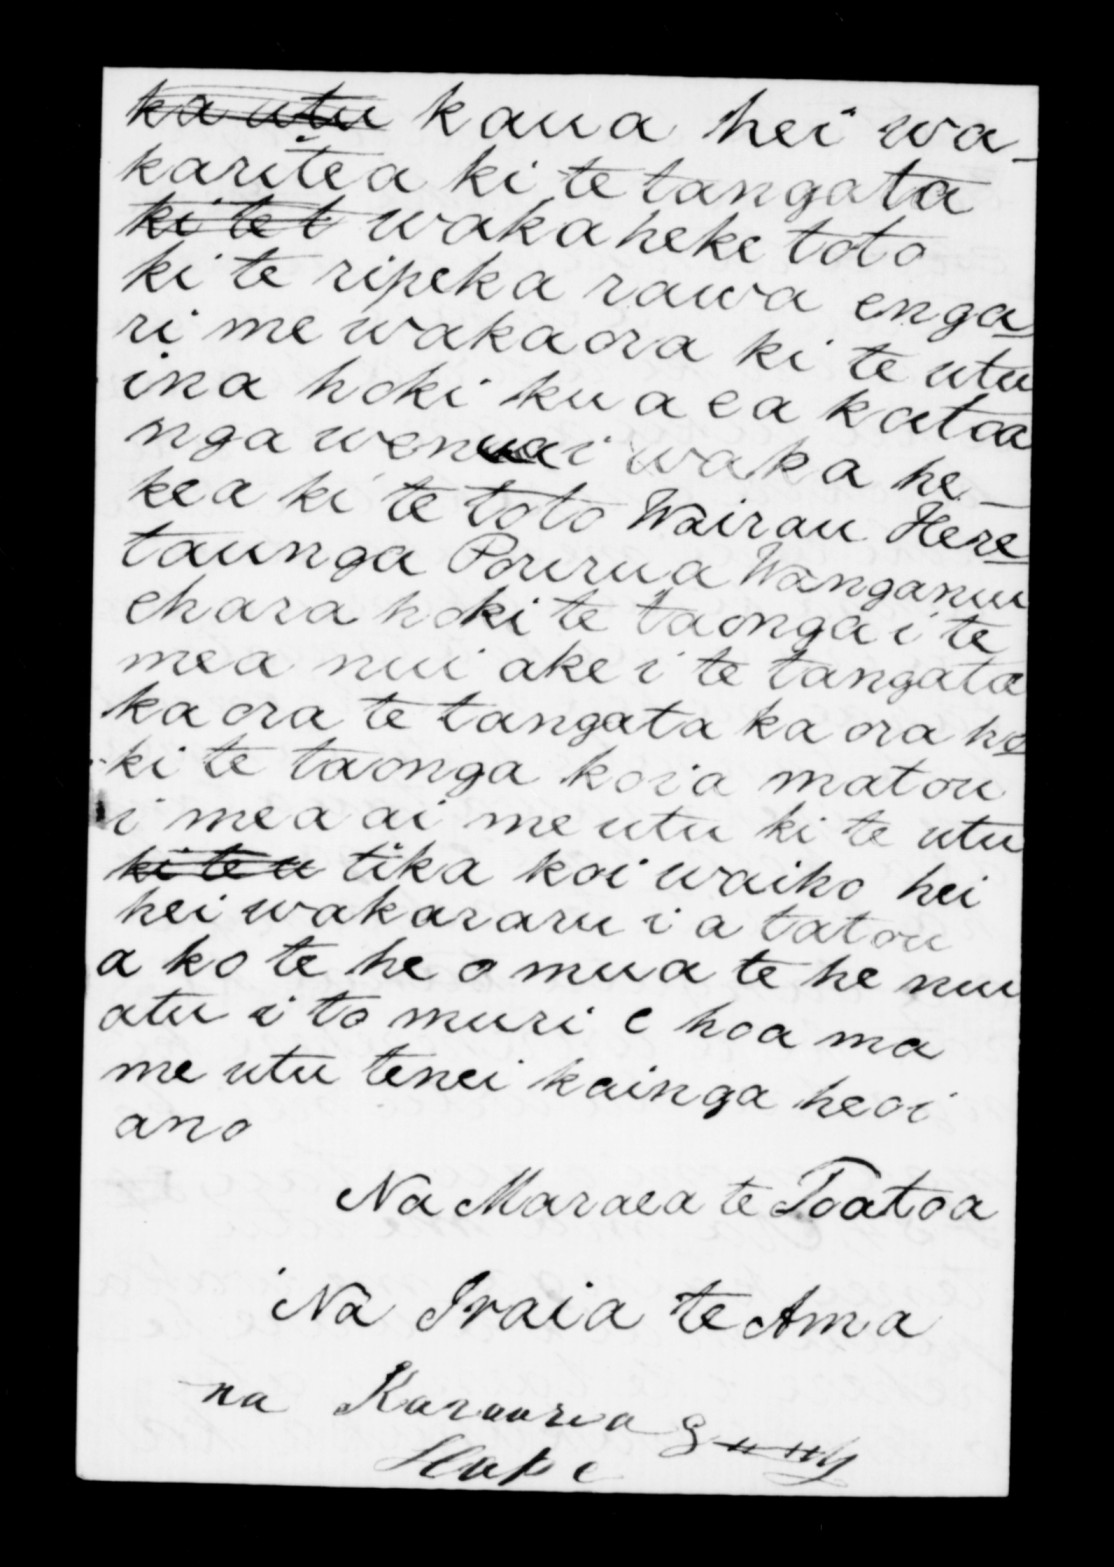 ka utu kaua hei wa-
karitea ki te tangata
ki te t wakaheke toto
ki te ripeka rawa enga
ri me wakaora ki te utu
ina hoki kua ea katoa
nga wenua i waka he-
kea ki te toto Wairau Here
taunga Porirua Wanganui
ehara hoki te taonga i te
mea nui ake i te tangata
ka ora te tangata ka ora ho
ki te taonga koia matou
i mea ai me utu ki te utu
ki te u tika koi waiho hei
hei wakararu i a tatou
a ko te he o mua te he nui
atu i to muri e hoa ma
me utu tenei kainga heoi
ano
Na Maraea te Toatoa
Na Iraia te Ama
na Karauria
Hape